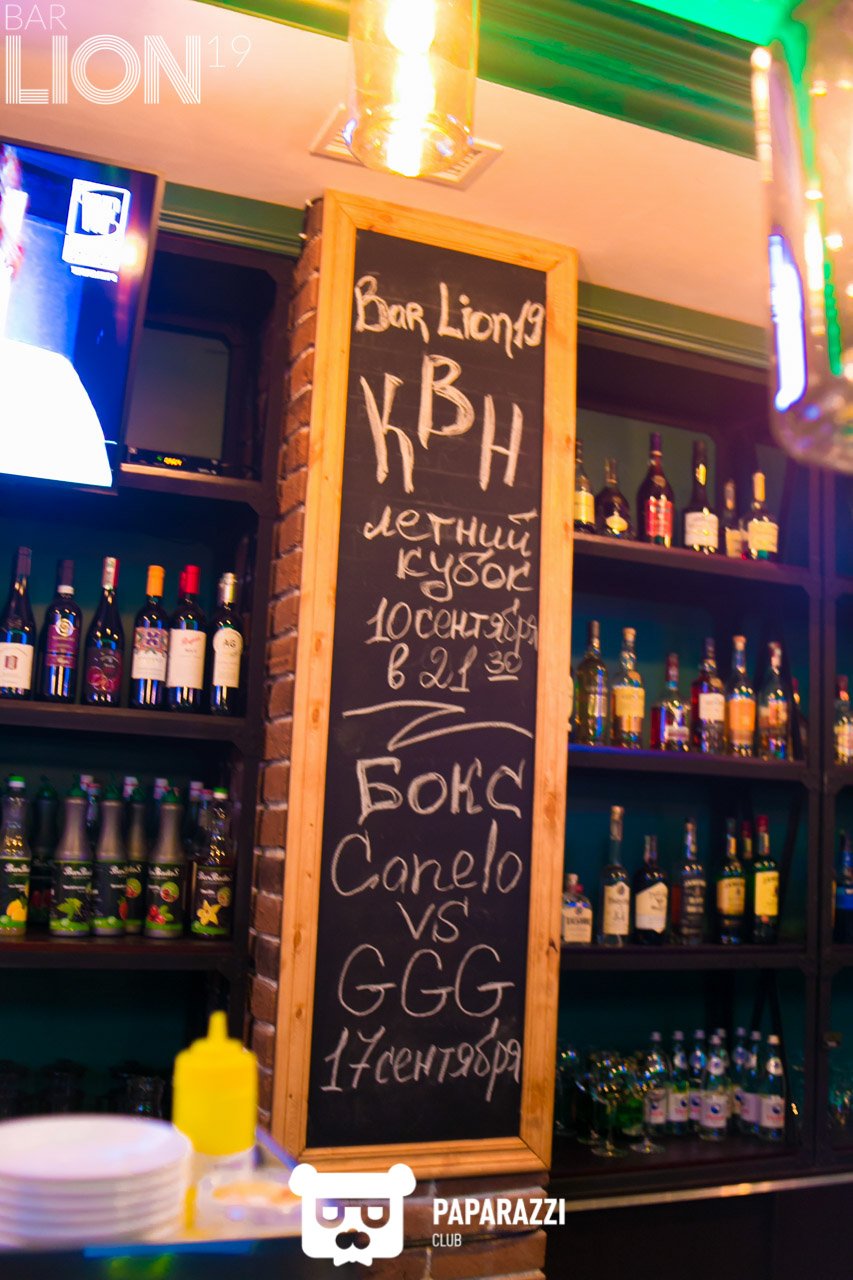 BAR
LION 19
Bar Lion19
КВН
летний
кубок
10 сентября
в 21 30
Бокс
Canelo
vs
GGG
17 сентября
PAPARAZZI
CLUB